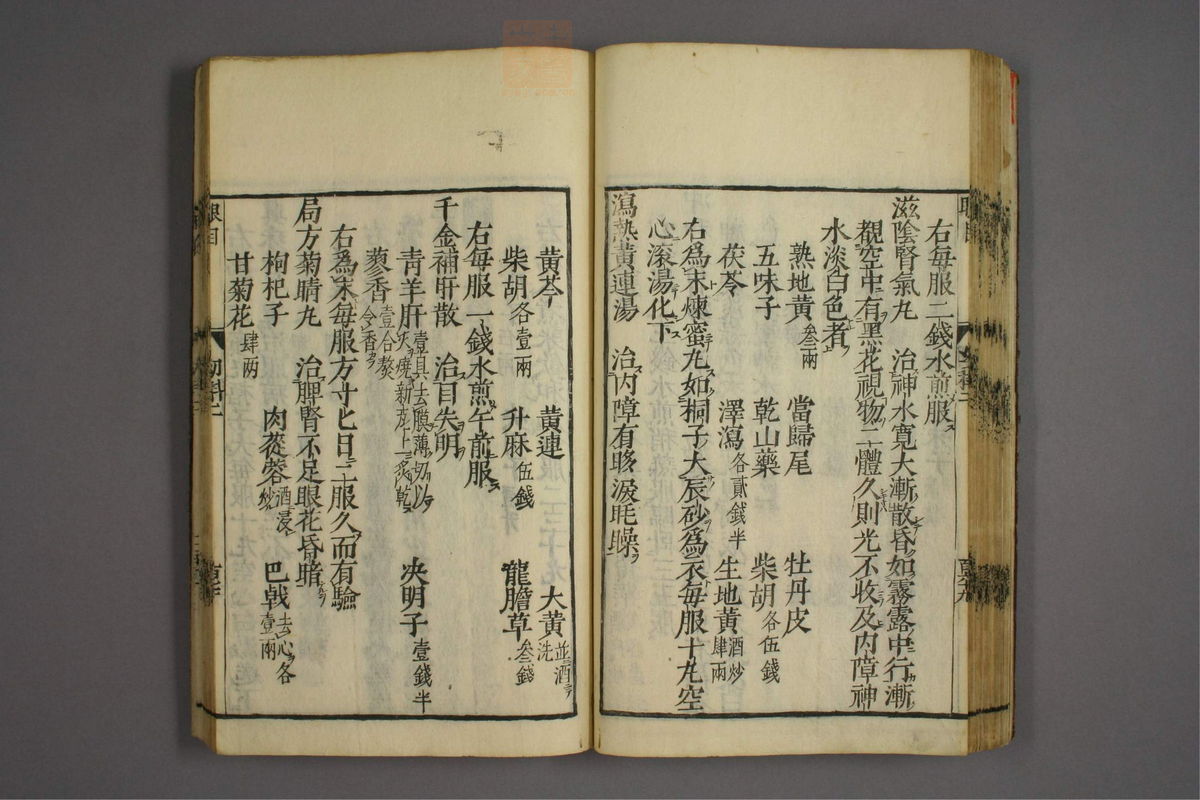 右毎服二錢水煎服
滋陰腎氣丸　治神水寬大漸散昏如霧露中行漸
覩空中有黑花視物二體久則光不收及內障神
水淡白色者
熟地黃叁兩　當歸尾　牡丹皮
五味子　乾山藥　柴胡各伍錢
茯苓　澤瀉各貳錢半　生地黃酒炒肆兩
右爲末煉蜜丸如桐子大辰砂爲衣毎服十丸空
心滾湯化下
瀉熱黃連湯　治內障有眵淚眊矂
黃芩　黃連　大黃並酒洗
柴胡各壹兩　升麻伍錢　龍膽草叁錢
右毎服一錢水煎午前服
千金補肝散　治目失明
青羊肝壹具去膜薄切以新瓦上炙乾　決明子壹錢半
蓼香壹合熬令香
右爲末毎服方寸匕日二服久而有驗
局方菊睛丸　治脾腎不足眼花昏暗
枸杞子　肉蓯蓉酒浸炒　巴戟去心各壹兩
甘菊花肆兩
眼目